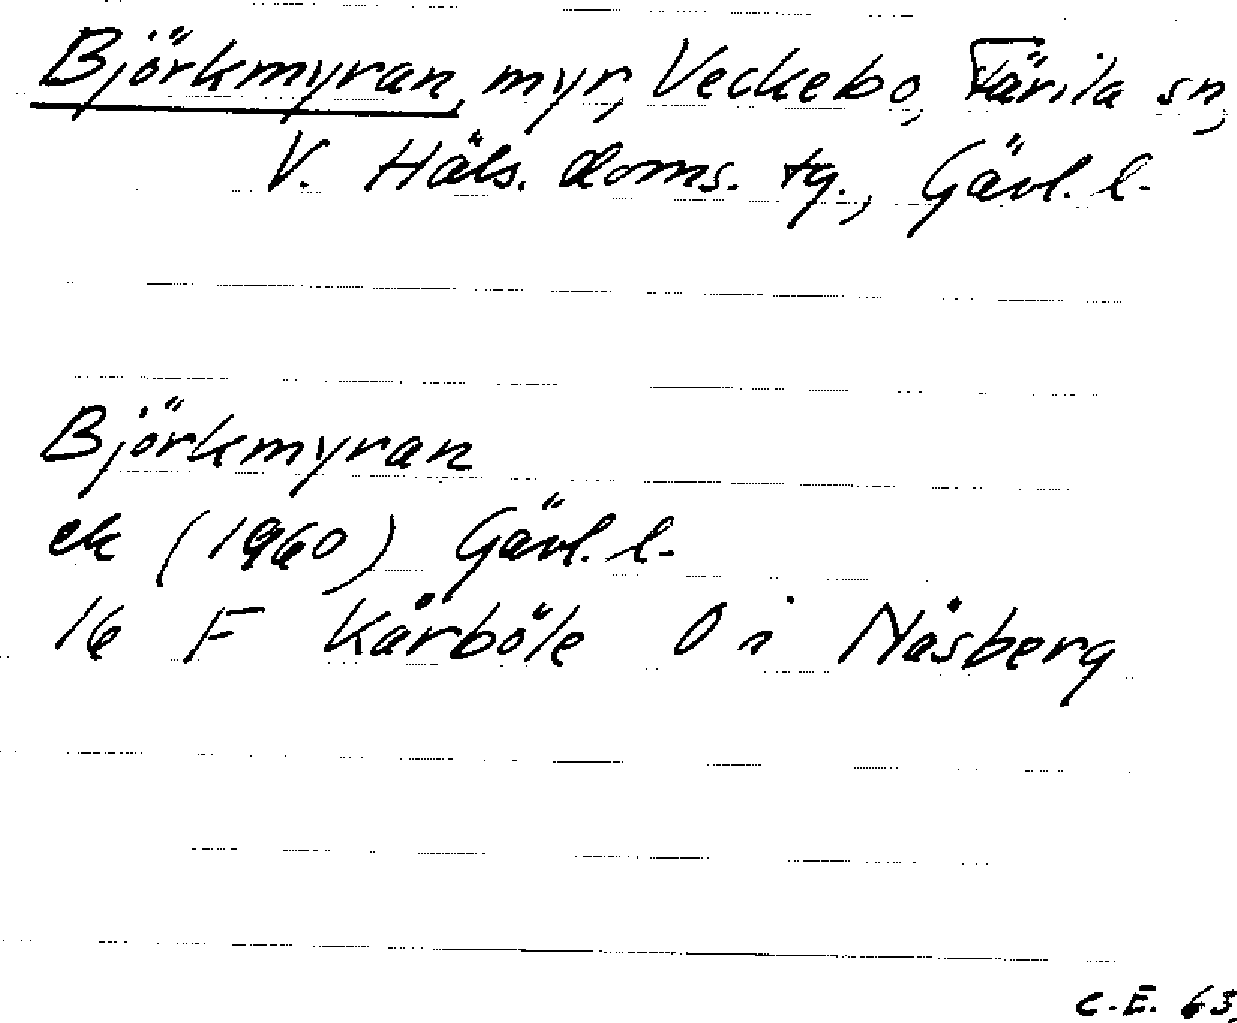 Björkmyran, myr, Veckebo, Färila sn,
V. Häls. doms. tg., Gävl. l.
Björkmyran
ek (1960) Gävl. l.
16 F Kårböle O i Nåsberg
C.E. 63.